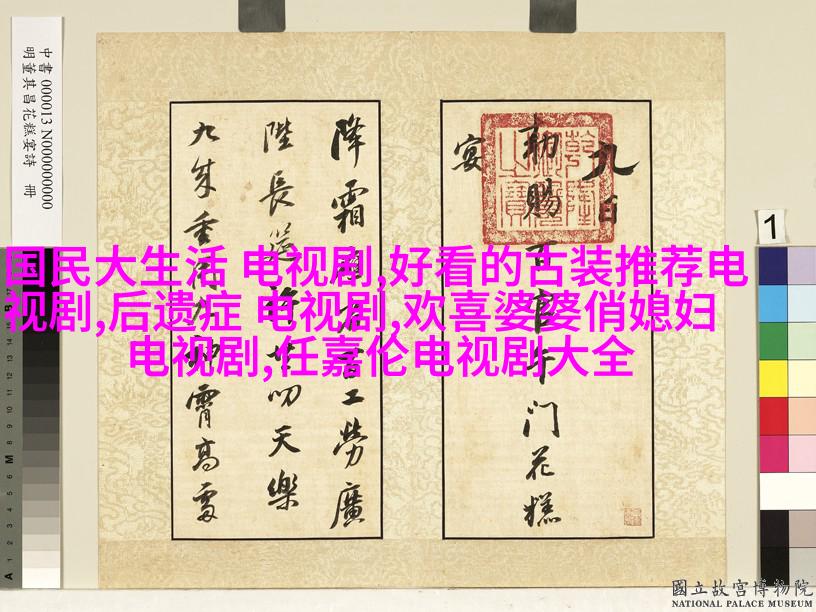 中書 000013 N000000000
明董其昌花糕宴詩 冊
國民大生活 电视剧,好看的古装推荐电
视剧,后遗症 电视剧,欢喜婆婆俏媳妇
电视剧,任嘉伦电视剧大全
九日
勅賜百官午門花糕
宴
降霜 百工勞廣
陛長筵 叨天樂
九 重 霄高
1
國立故宮博物院
NATIONAL PALACE MUSEUM